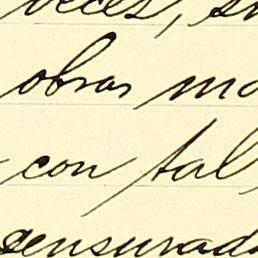 veces, su
obras mo
con tal,
censurad